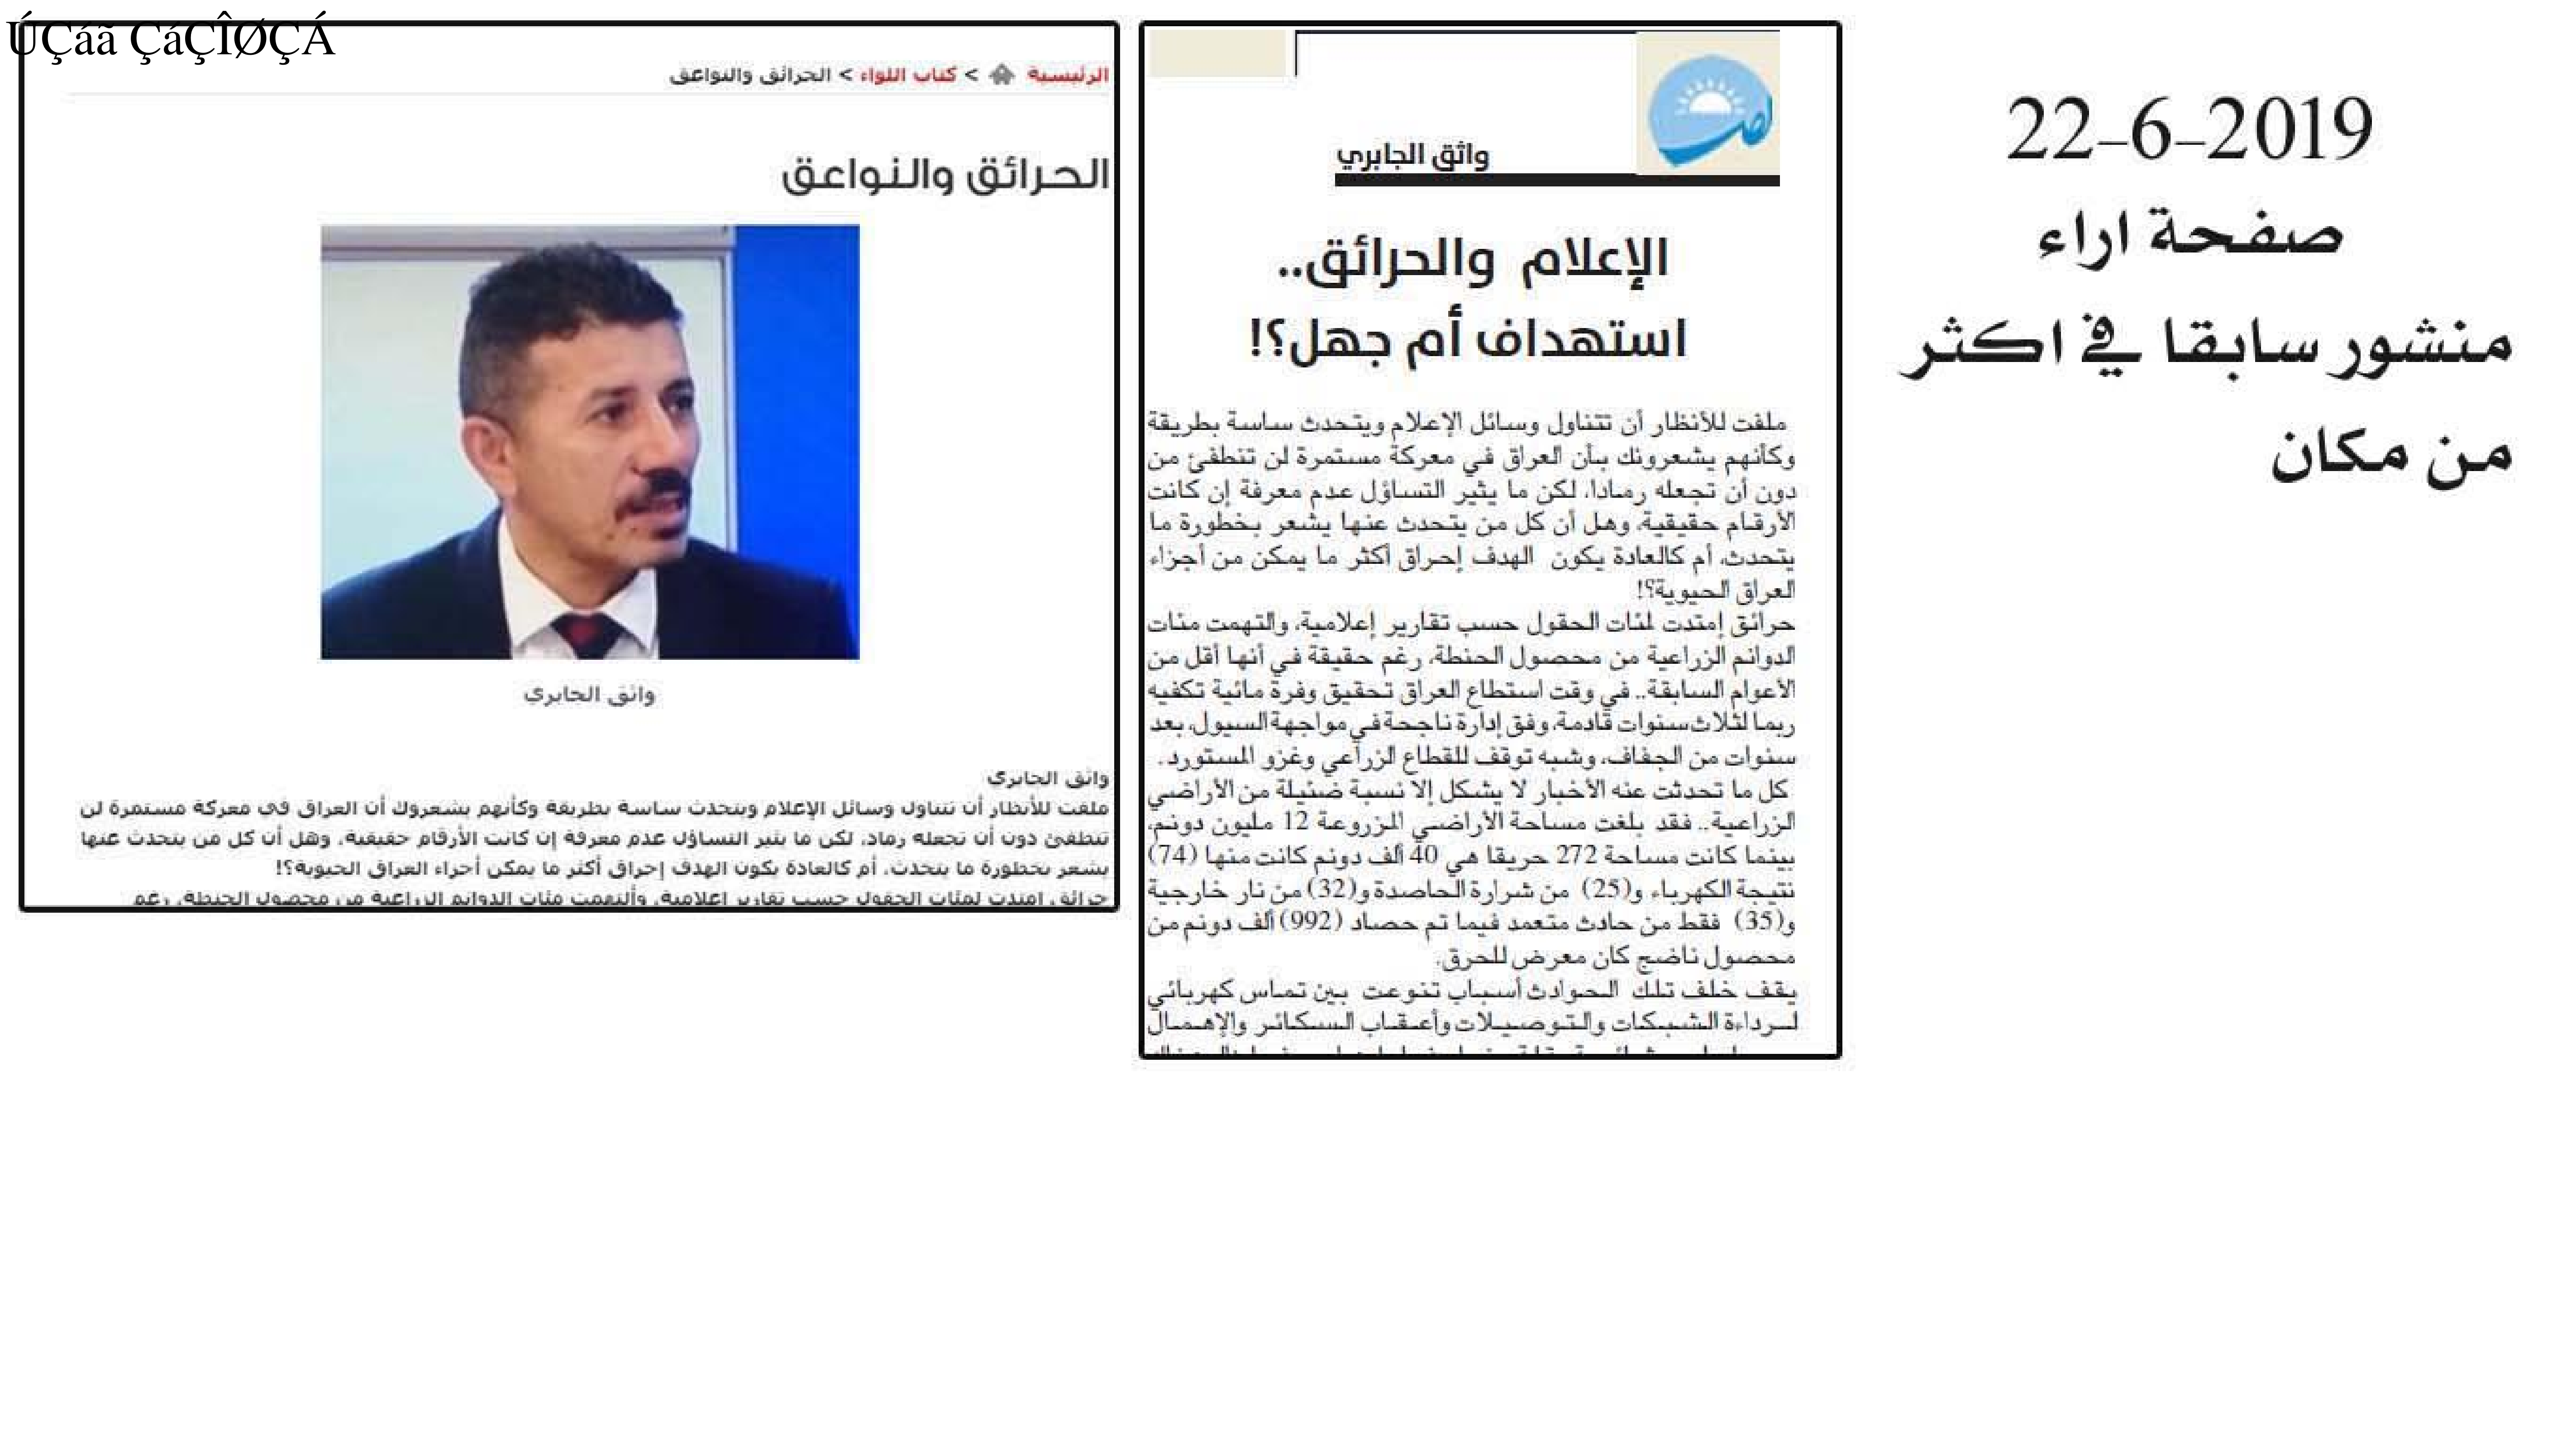 ÚÇáã ÇáÇÎØÇÁ
22-6-2019
صفحة اراء
منشور سابقا في اكثر
من مكان
واثق الجابري
الإعلام والحرائق..
استهداف أم جهل؟!
ملفت للأنظار أن تتناول وسائل الإعلام ويتحدث ساسة بطريقة
وكأنهم يشعرونك بأن العراق في معركة مستمرة لن تنطفئ من
دون أن تجعله رمادا، لكن ما يثير التساؤل عدم معرفة إن كانت
الأرقام حقيقية، وهل أن كل من يتحدث عنها يشعر بخطورة ما
يتحدث، أم كالعادة يكون الهدف إحراق أكثر ما يمكن من أجزاء
العراق الحيوية؟!
حرائق إمتدت لمئات الحقول حسب تقارير إعلامية، والتهمت مئات
الدوانم الزراعية من محصول الحنطة، رغم حقيقة في أنها أقل من
الأعوام السابقة.. في وقت استطاع العراق تحقيق وفرة مائية تكفيه
ربما لثلاث سنوات قادمة، وفق إدارة ناجحة في مواجهة السيول، بعد
سنوات من الجفاف، وشبه توقف للقطاع الزراعي وغزو المستورد.
كل ما تحدثت عنه الأخبار لا يشكل إلا نسبة ضئيلة من الأراضي
الزراعية.. فقد بلغت مساحة الأراضي المزروعة 12 مليون دونم،
بينما كانت مساحة 272 حريقا هي 40 ألف دونم كانت منها (74)
نتيجة الكهرباء و(25) من شرارة الحاصدة و(32) من نار خارجية
و(35) فقط من حادث متعمد فيما تم حصاد (992) ألف دونم من
محصول ناضج كان معرض للحرق.
يقف خلف تلك الحوادث أسباب تنوعت بين تماس كهربائي
لرداءة الشبكات والتوصيلات وأعقاب السكائر والإهمال
الرئيسية > كتاب اللواء > الحرائق والنواعق
الحرائق والنواعق
واثق الجابري
واثق الجابري
ملفت للأنظار أن تتناول وسائل الإعلام ويتحدث ساسة بطريقة وكأنهم يشعروك أن العراق في معركة مستمرة لن
تنطفئ دون أن تجعله رماد، لكن ما يثير التساؤل عدم معرفة إن كانت الأرقام حقيقية، وهل أن كل من يتحدث عنها
يشعر بخطورة ما يتحدث، أم كالعادة يكون الهدف إحراق أكثر ما يمكن أجزاء العراق الحيوية؟!
حرائق امتدت لمئات الحقول حسب تقارير إعلامية، وألتهمت مئات الدوانم الزراعية من محصول الحنطة، رغم